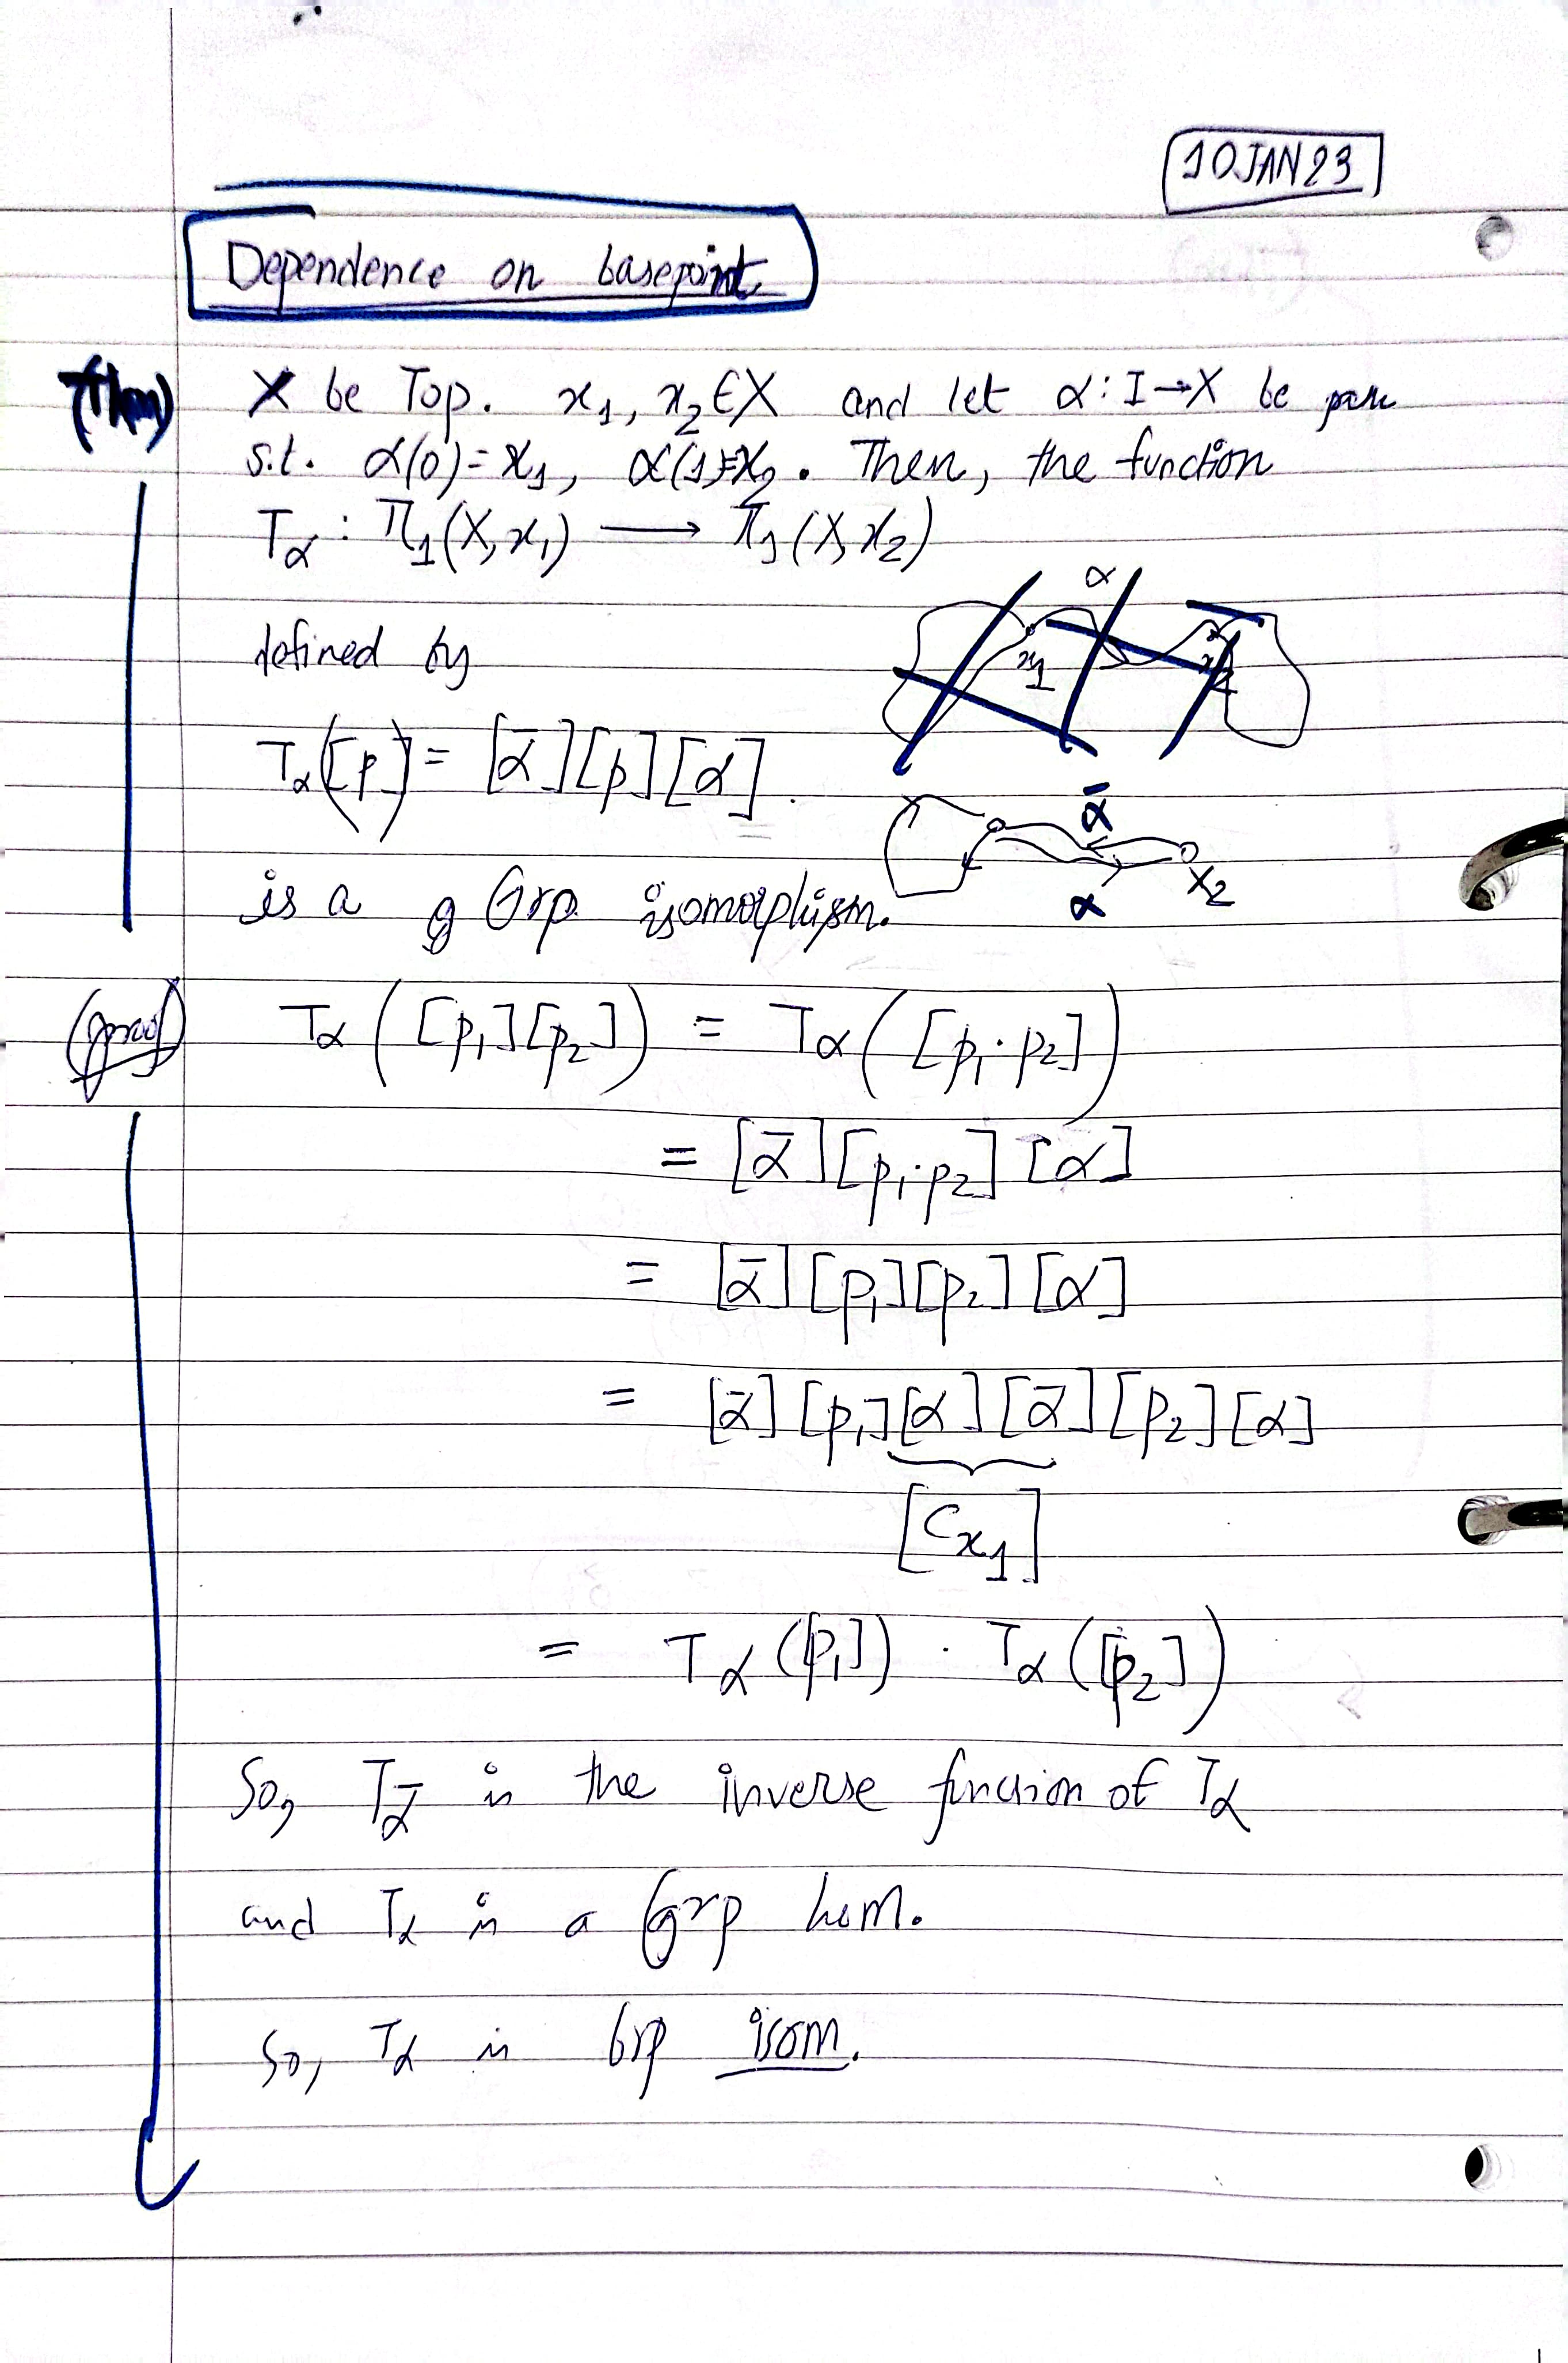 10JAN23
Dependence on basepoint
(Thm) X be Top. x₁, x₂ ∈ X and let α : I → X be path
s.t. α(0) = x₁, α(1) = x₂. Then, the function
T_α : π₁(X, x₁) ⟶ π₁(X, x₂)
α
x₁ x₂
defined by
T_α([p]) = [ᾱ][p][α].
ᾱ
α x₂
is a g Grp isomorphism.
(proof) T_α([p₁][p₂]) = T_α([p₁·p₂])
= [ᾱ][p₁·p₂][α]
= [ᾱ][p₁][p₂][α]
= [ᾱ][p₁][α][ᾱ][p₂][α]
[C_x₁]
= T_α([p₁]) · T_α([p₂])
So, T_ᾱ is the inverse function of T_α
and T_α is a Grp hom.
So, T_α is Grp isom.